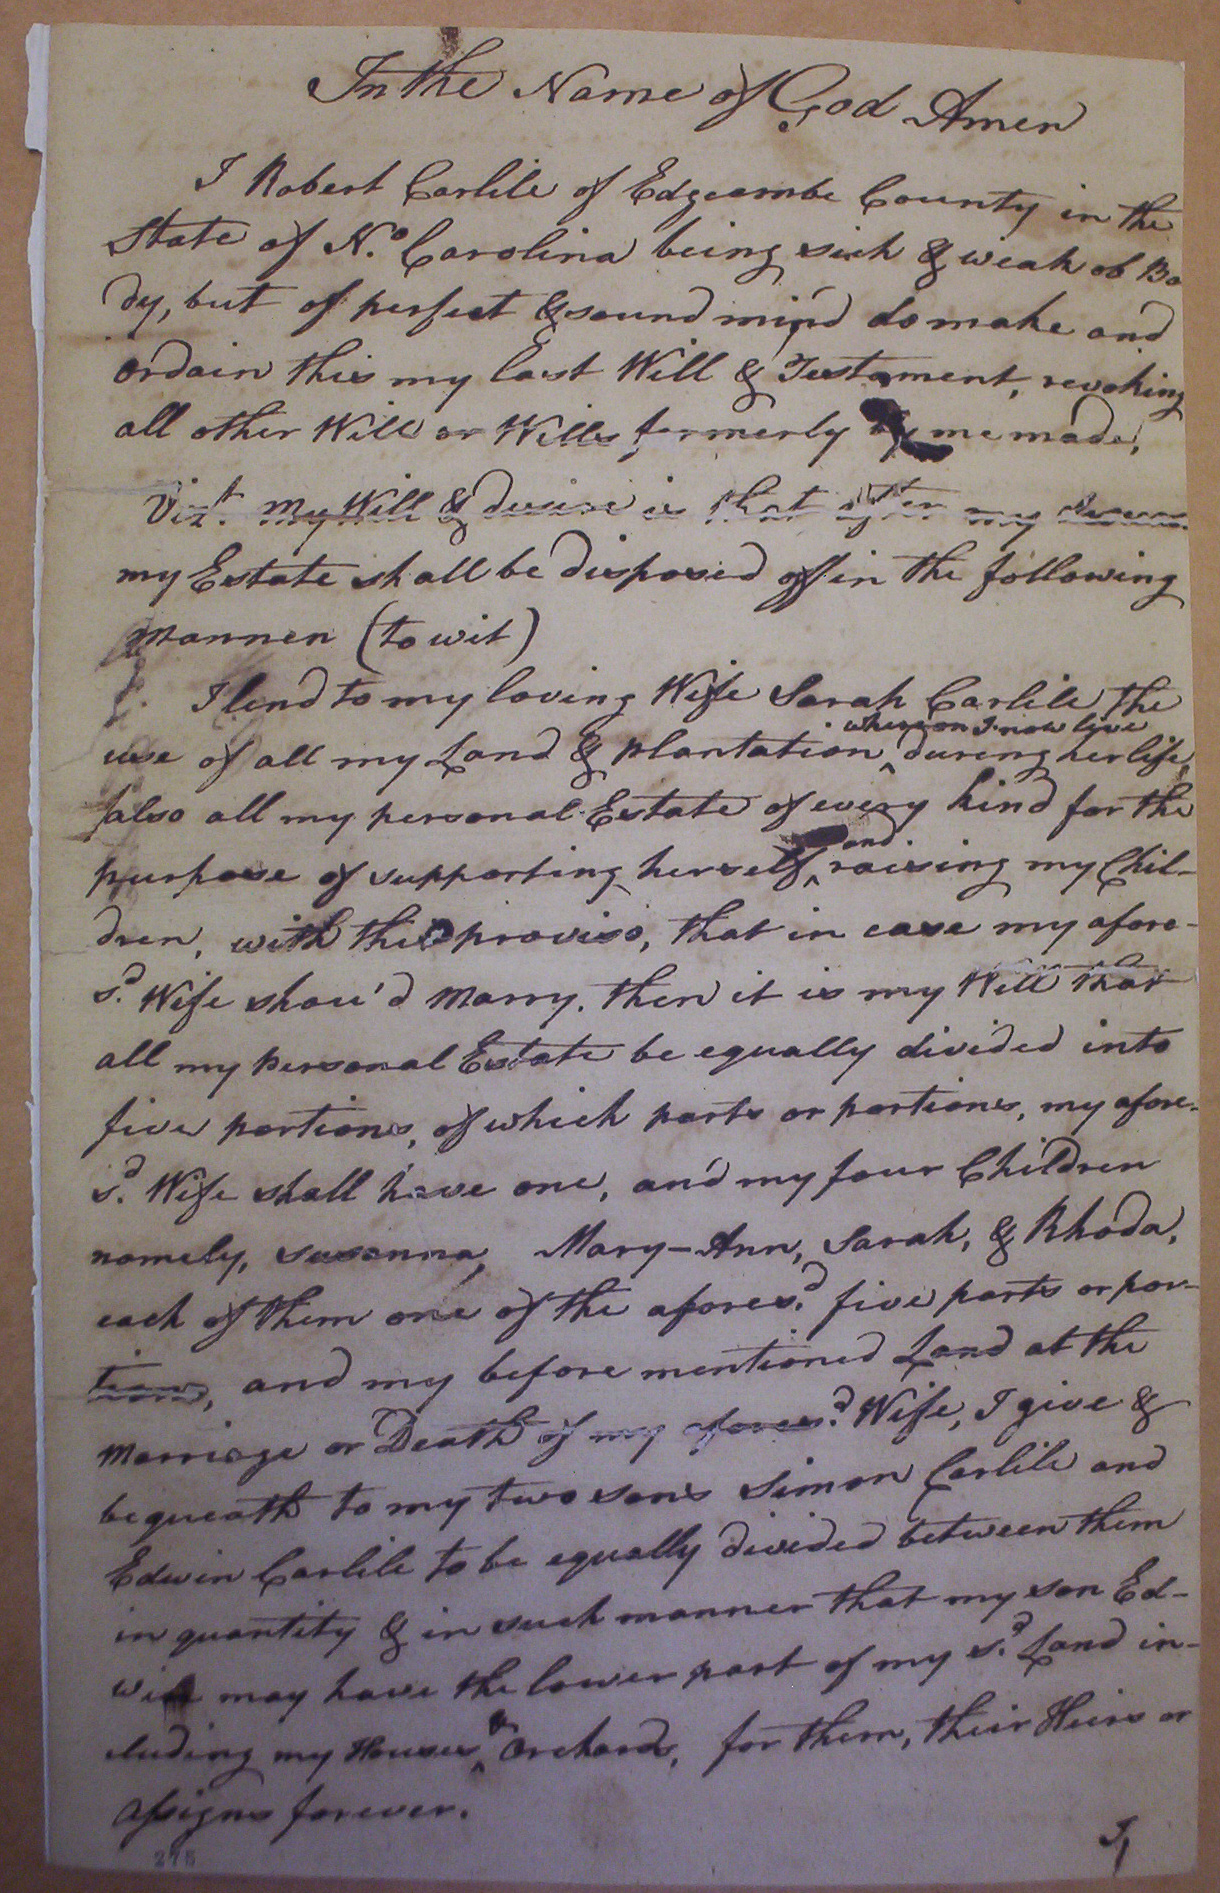 In the Name of God Amen
I Robert Carlile of Edgecombe County in the
State of No. Carolina being sick & weak of Bo
dy, but of perfect & sound mind do make and
ordain this my last Will & Testament, revoking
all other Will or Wills formerly by me made,
Vizt. my Will & desire is that after my decease
my Estate shall be disposed off in the following
Mannen (to wit)
I lend to my loving Wife Sarah Carlile the
use of all my Land & plantation ^ whereon I now live during her life,
also all my personal Estate of every kind for the
purpose of supporting herself ^ and raising my Chil-
dren, with this proviso, that in case my afore-
sd. Wife shou'd Marry, then it is my Will that
all my personal Estate be equally divided into
five portions, of which parts or portions, my afore-
sd. Wife shall have one, and my four Children
namely, Susanna, Mary-Ann, Sarah, & Rhoda,
each of them one of the aforesd. five parts or por-
tions, and my before mentioned Land at the
Marriage or Death of my aforesd. Wife, I give &
bequeath to my two sons Simon Carlile and
Edwin Carlile to be equally divided between them
in quantity & in such manner that my son Ed-
win may have the lower part of my sd. Land in-
cluding my Houses ^ & Orchards, for them, their Heirs or
assigns forever.
I,
275